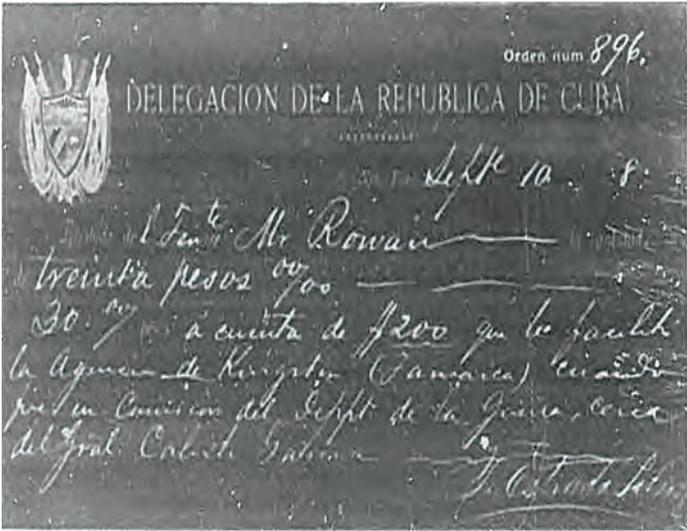 Orden num 896.
DELEGACION DE LA REPUBLICA DE CUBA
Sept. 10 8
l Tente Mr Rowan
treinta pesos 00/00
30.00 á cuenta de $200 que le facilitó
la Agencia de Kingston (Jamaica) cuando
fué en Comisión del Deppt de la Guerra, cerca
del Gral. Calixto García